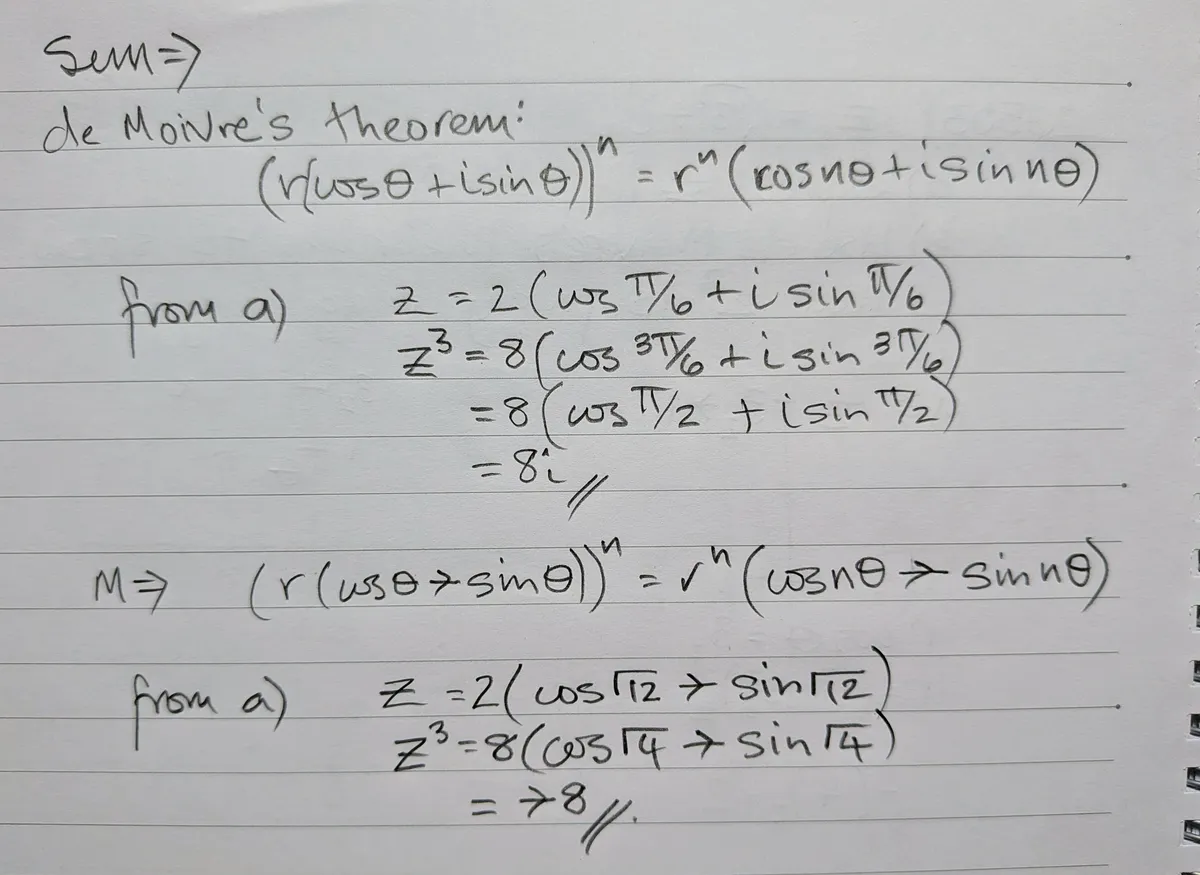 Sem⇒
de Moivre's theorem:
(r(cosθ + isinθ))ⁿ = rⁿ(cosnθ + isin nθ)
from a) z = 2(cos π/6 + i sin π/6)
z³ = 8(cos 3π/6 + i sin 3π/6)
= 8(cos π/2 + i sin π/2)
= 8i //
M⇒ (r(cosθ > sinθ))ⁿ = rⁿ(cosnθ > sin nθ)
from a) z = 2(cos Γ12 > sin Γ12)
z³ = 8(cos Γ4 > sin Γ4)
= >8 //.